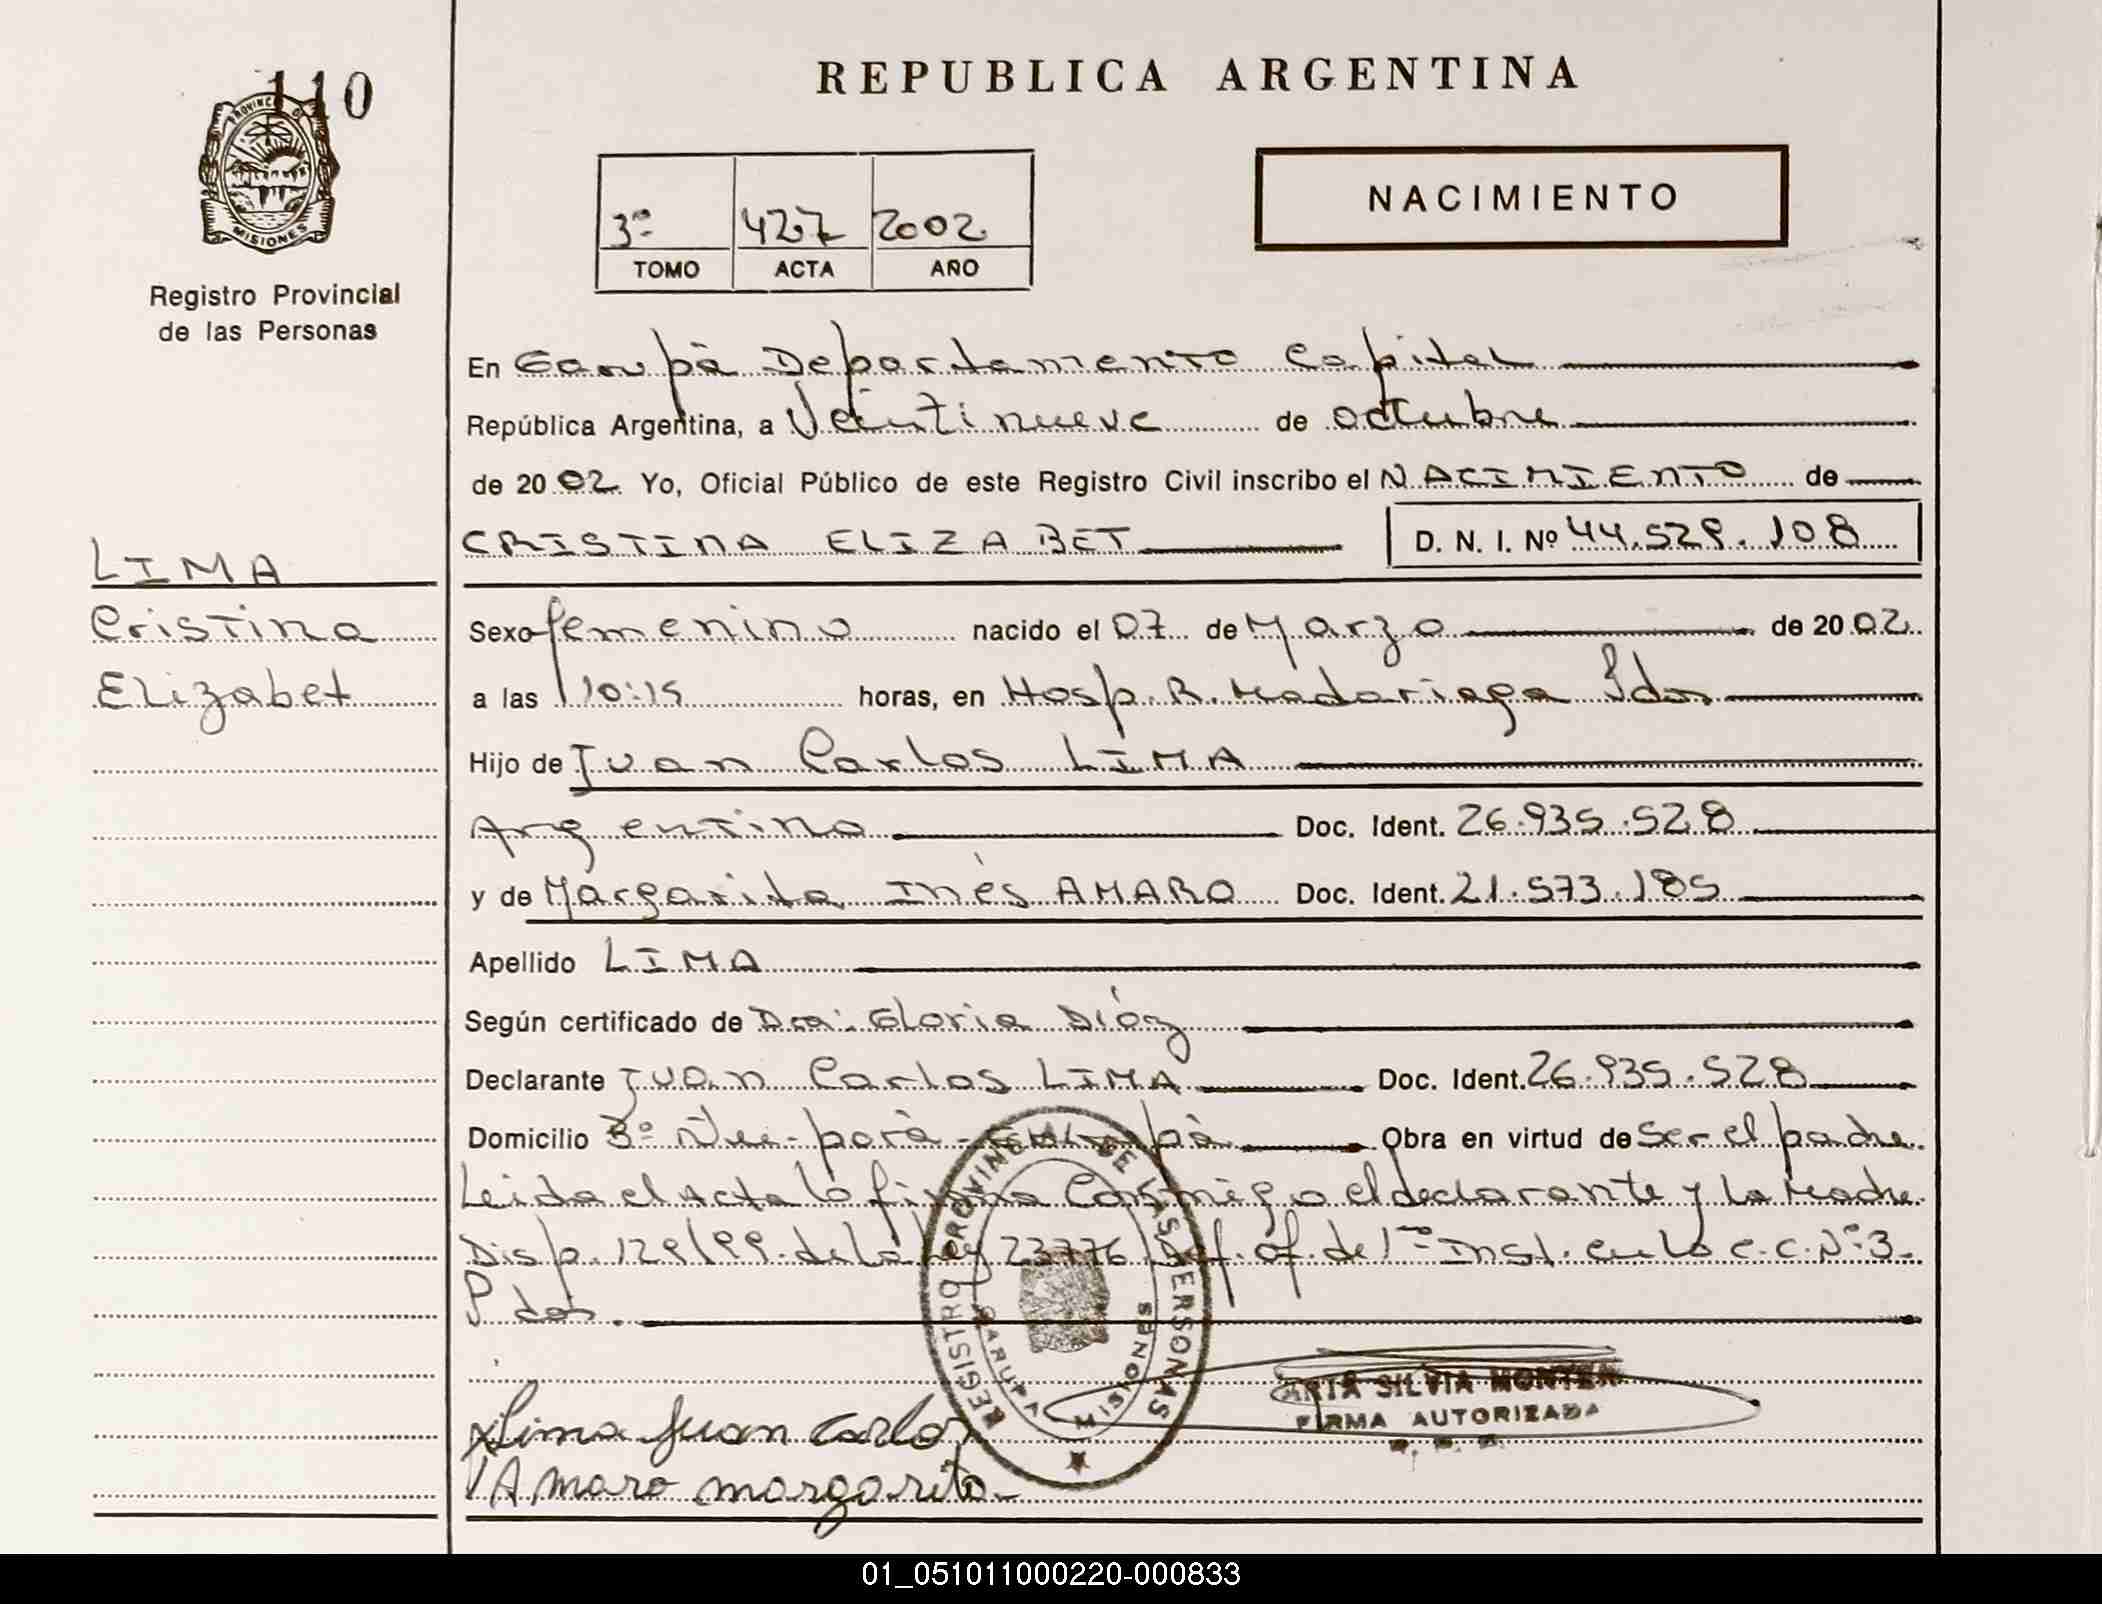 110
PROVINCIA
MISIONES
Registro Provincial
de las Personas
REPUBLICA ARGENTINA
NACIMIENTO
3º 427 2002
TOMO ACTA AÑO
En Garupà Departamento Capital
República Argentina, a Veintinueve de octubre
de 2002 Yo, Oficial Público de este Registro Civil inscribo el NACIMIENTO de
CRISTINA ELIZABET D. N. I. Nº 44.529.108
LIMA
Cristina
Elizabet
Sexo femenino nacido el 07 de Marzo de 2002
a las 10:15 horas, en Hosp. R. Madariaga Pdas
Hijo de Juan Carlos LIMA
Argentino Doc. Ident. 26.935.528
y de Margarita Inés AMARO Doc. Ident. 21.573.185
Apellido LIMA
Según certificado de Dra. Gloria Dióz
Declarante Juan Carlos LIMA Doc. Ident. 26.935.528
Domicilio Bº Ñu-porà - Garupà Obra en virtud de ser el padre
Leida el Acta la firma Conmigo el declarante y La Madre
Disp. 129/99 de la Ley 23776 Def. of. de 1ra Inst. en lo C.C. Nº 3-
Pdas.
REGISTRO PROVINCIAL DE LAS PERSONAS
GARUPA MISIONES
Lima Juan Carlos
SILVIA
FIRMA AUTORIZADA
Amaro margarita
01_051011000220-000833